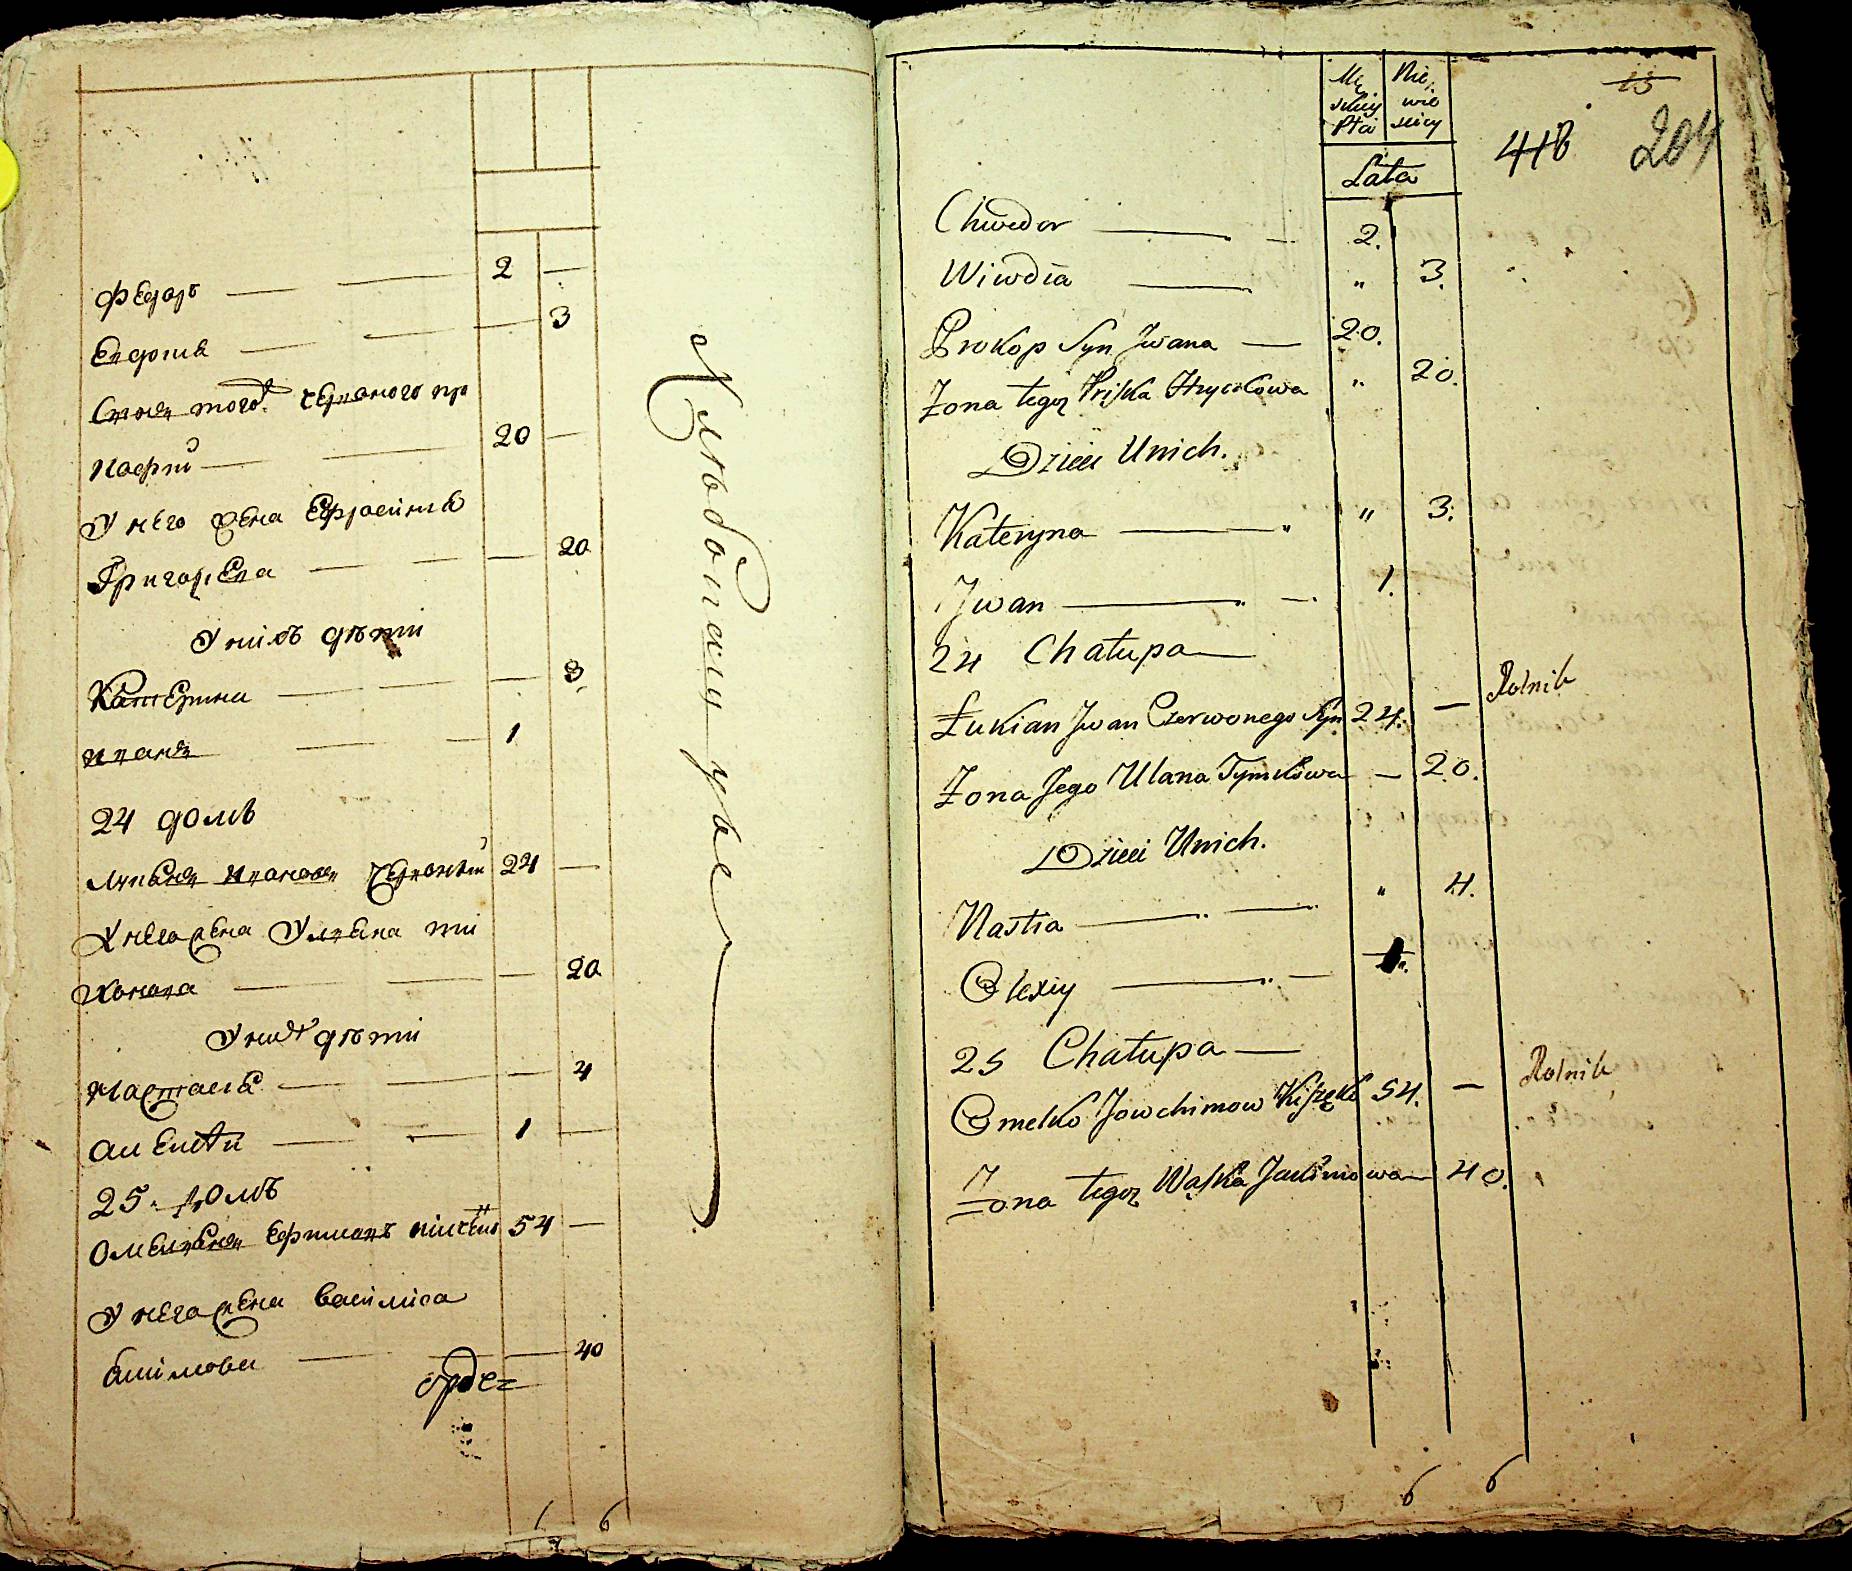 Федоръ — — 2 —
Евдокия — — — 3
Сынъ того червоного пр
кофий — — 20 —
У него жена Ефросиния
Григорьева — — — 20
У нихъ дѣти
Катерина — — — 3
Иванъ — — 1
24 домъ
Лукьянъ Ивановъ Червоный 24 —
У него жена Ульяна ти
хонова — — — 20
У них дѣти
Настасья — — — 4
Алексѣй — — 1 —
25. Домъ
Омельянъ Ефимовъ 54 —
У него жена Василиса
— — 40
6
Mę skiey Płci
Nie wie sciey
Lata
15
418
204
Chwedor — — 2.
Wiwdia — " 3.
Prokop Syn Jwana — 20.
Zona tegoz Pryska Hryckowa " 20.
Dzieci Unich.
Kateryna — " " 3.
Jwan — — 1.
24 Chałupa —
Łukian Jwan Czerwonego Syn 24. — Rolnik
Zona Jego Ulana Tymkowa — 20.
Dzieci Unich.
Nastia — — " 4.
Olexiy — — 1.
25 Chałupa —
Omelko Jowchimow 54. — Rolnik
Zona tegoz Waska Jackimowa — 40.
6 6